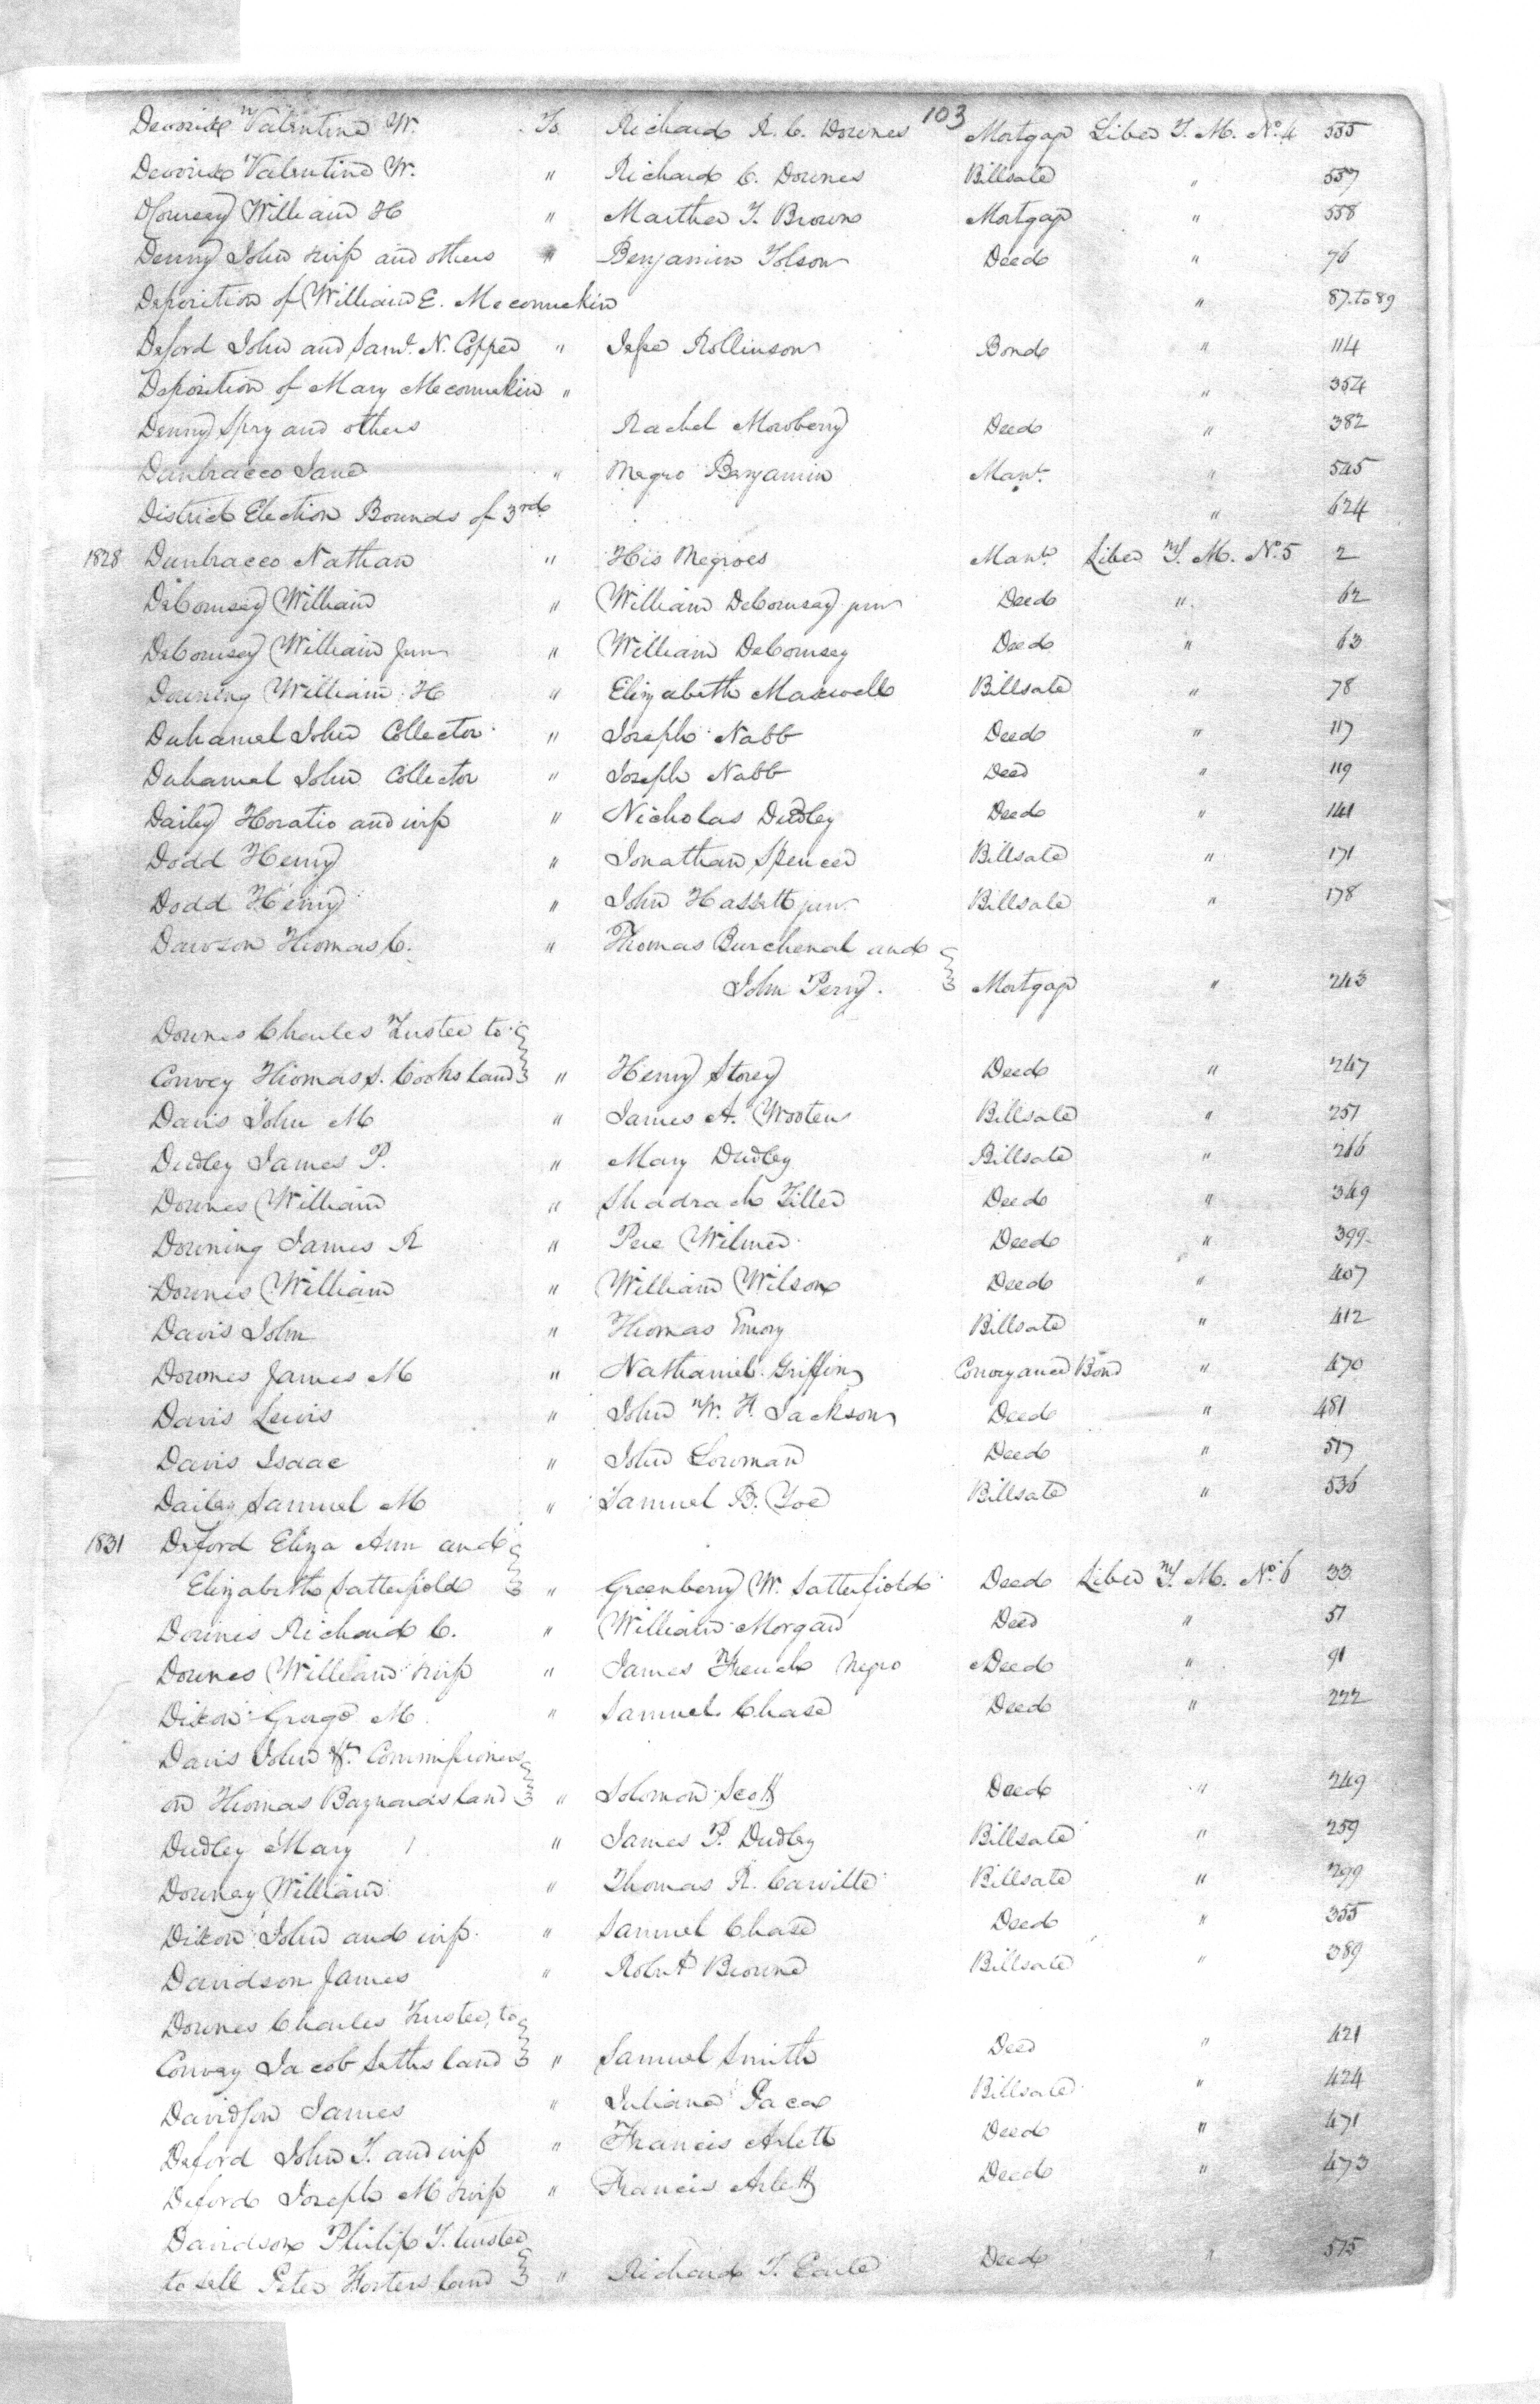 103
Devorix Valentine W. To Richard R. C. Downes Mortgage Liber T. M. No. 4 555
Devorix Valentine W. " Richard C. Downes Billsale " 557
William H " Martha T. Brown Mortgage " 558
Denny John & wife and others " Benjamin Tolson Deed " 76
Deposition of William E. Meconnekin " 87. to 89
Deford John and Saml. N. Copper " Jesse Rollinson Bond " 114
Deposition of Mary Meconnekin " " 354
Denny Spry and others Rachel Mowberry Deed " 382
Dunbracco Jane " Negro Benjamin Mann. " 545
District Election Bounds of 3rd " 624
1828 Dunbracco Nathan " His Negroes Mann. Liber T. M. No. 5 2
DeCoursey William " William DeCoursey junr Deed " 62
DeCoursey William Junr " William DeCoursey Deed " 63
Downing William H " Elizabeth Maxwell Billsale " 78
Duhamel John Collector " Joseph Nabb Deed " 117
Duhamel John Collector " Joseph Nabb Deed " 119
Dailey Horatio and wife " Nicholas Dudley Deed " 141
Dodd Henry " Jonathan Spencer Billsale " 171
Dodd Henry " John Hassett junr. Billsale " 178
Dawson Thomas C. " Thomas Burchenal and
John Perry. Mortgage " 243
Downes Charles Trustee to
Convey Thomas S. Cooks land " Henry Storey Deed " 247
Davis John M " James A. Wooten Billsale " 251
Dudley James P. " Mary Dudley Billsale " 266
Downes William " Shadrach Tiller Deed " 349
Downing James R " Pere Wilmer Deed " 399
Downes William " William Wilson Deed " 407
Davis John " Thomas Emory Billsale " 412
Downes James M " Nathaniel Griffin Conveyance Bond " 470
Davis Lewis " John W. H. Jackson Deed " 481
Davis Isaac " John Lowman Deed " 517
Dailey Samuel M " Samuel B. Yoe Billsale " 536
1831 Deford Eliza Ann and
Elizabeth Satterfield " Greenberry W. Satterfield Deed Liber T. M. No. 6 33
Downes Richard C. " William Morgan Deed " 51
Downes William & wife " James French Negro Deed " 91
Dixon George M. " Samuel Chase Deed " 222
Davis John &c. Commissioners
on Thomas Baynards land " Solomon Scott Deed " 249
Dudley Mary " James P. Dudley Billsale " 259
Downey William " Thomas R. Carville Billsale " 299
Dixon John and wife " Samuel Chase Deed " 355
Davidson James " Robert Browne Billsale " 389
Downes Charles Trustee, to
Convey Jacob Seths land " Samuel Smith Deed " 421
Davidson James " Juliana Paca Billsale " 424
Deford John T. and wife " Francis Arlett Deed " 471
Deford Joseph M & wife " Francis Arlett Deed " 473
Davidson Philip T. trustee
to sell Peter Fosters land " Richard T. Earle Deed " 515